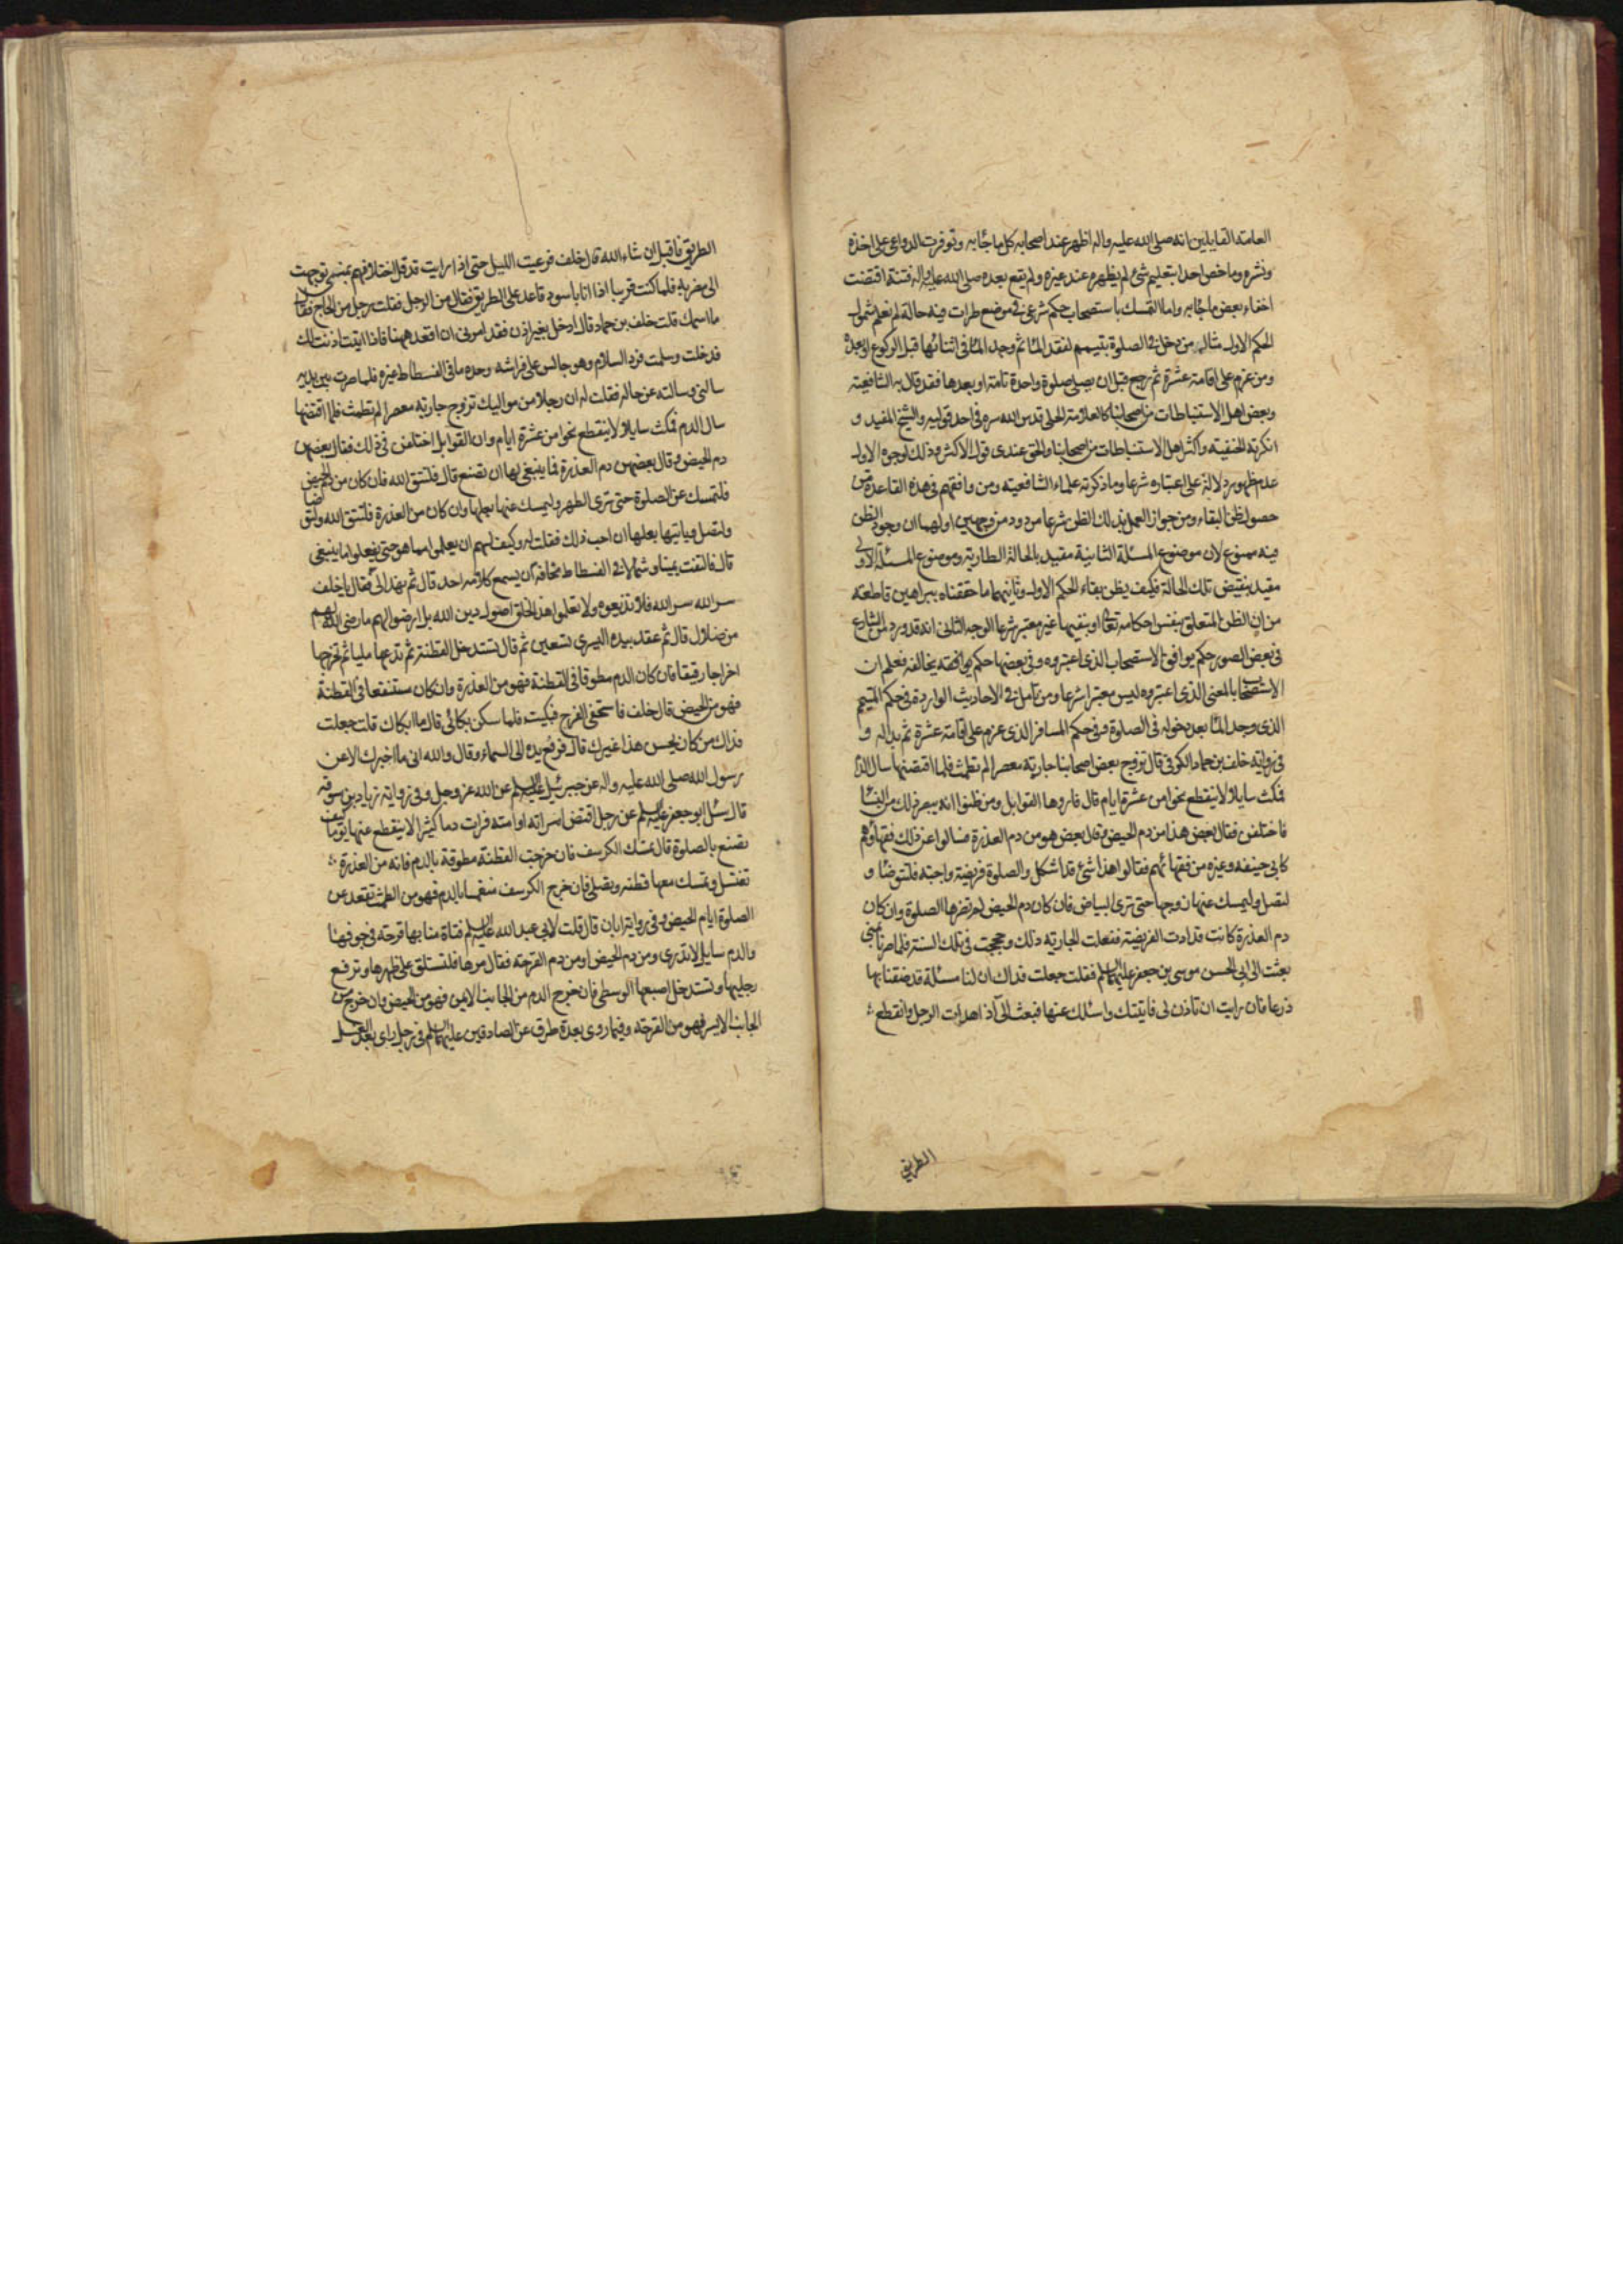 العامة القايلين انه صلى الله عليه واله اظهر عند اصحابه كل ما جاء به وتوفرت الدواعى على اخذه
ونشره وما خص احدا بتعليم شئ لم يظهره عند غيره ولم يقع بعده صلى الله عليه واله فتنة اقتضت
اخفاء بعض ما جاء به واما التمسك باستصحاب حكم شرعى فى موضع طرات فيه حالة لم نعلم شمول
الحكم الاول مثاله من دخل فى الصلوة بتيمم لفقد الماء ثم وجد الماء فى اثنائها قبل الركوع او بعده
ومن عزم على اقامة عشرة ثم رجع قبل ان يصلى صلوة واحدة تامة او بعدها فقد قال به الشافعية
وبعض اهل الاستنباطات من اصحابنا كالعلامة الحلى قدس الله سره فى احد قوليه والشيخ المفيد و
انكرته الحنفية واكثر اهل الاستنباطات من اصحابنا والحق عندى قول الاكثر وذلك لوجوه الاول
عدم ظهور دلالة على اعتباره شرعا وما ذكرته علماء الشافعية ومن وافقهم فى هذه القاعدة من
حصول ظن البقاء ومن جواز العمل بذلك الظن شرعا مردود من وجهين اولهما ان وجود الظن
فيه ممنوع لان موضوع المسئلة الثانية مقيد بالحالة الطارية وموضوع المسئلة الاولى
مقيد بنقيض تلك الحالة فكيف يظن بقاء الحكم الاول وثانيهما ما حققناه ببراهين قاطعة
من ان الظن المتعلق بنفس احكامه تعالى او بنفيها غير معتبر شرعا الوجه الثانى انه قد ورد من الشارع
فى بعض الصور حكم يوافق الاستصحاب الذى اعتبروه وفى بعضها حكم يخالفه فعلم ان
الاستصحاب بالمعنى الذى اعتبروه ليس معتبرا شرعا ومن تامل فى الاحاديث الواردة فى حكم المتيمم
الذى وجد الماء بعد دخوله فى الصلوة وفى حكم المسافر الذى عزم على اقامة عشرة ثم بدا له و
فى رواية خلف بن حماد الكوفى قال تزوج بعض اصحابنا جارية معصرا لم تطمث فلما اقتضها سال الدم
فمكث سايلا لا ينقطع نحوا من عشرة ايام قال فاروها القوابل ومن ظنوا انه يبصر ذلك من النساء
فاختلفن فقال بعض هذا من دم الحيض وقال بعض هو من دم العذرة فسالوا عن ذلك فقهاءهم
كابى حنيفه وغيره من فقهائهم فقالوا هذا شئ قد اشكل والصلوة فريضة واجبة فلتتوضا و
لتصل وليمسك عنها زوجها حتى ترى البياض فان كان دم الحيض لم تضرها الصلوة وان كان
دم العذرة كانت قد ادت الفريضة ففعلت الجارية ذلك وحججت فى تلك السنة فلما صرنا بمنى
بعثت الى ابى الحسن موسى بن جعفر عليهما السلم فقلت جعلت فداك ان لنا مسئلة قد ضقنا بها
ذرعا فان رايت ان تاذن لى فاتيتك واسئلك عنها فبعث الى اذا هدات الرجل وانقطع
الطريق
الطريق فاقبل ان شاء الله قال خلف فرعيت الليل حتى اذا رايت قد قل اختلافهم بمنى توجهت
الى مضربه فلما كنت قريبا اذا انا باسود قاعد على الطريق فقال من الرجل فقلت رجل من الحاج فقال
ما اسمك قلت خلف بن حماد قال ادخل بغير اذن فقد امرنى ان اقعد ههنا فاذا اتيت اذنت لك
فدخلت وسلمت فرد السلام وهو جالس على فراشه وحده ما فى الفسطاط غيره فلما صرت بين يديه
سالنى وسالته عن حاله فقلت له ان رجلا من مواليك تزوج جارية معصرا لم تطمث فلما اقتضها
سال الدم فمكث سايلا لا ينقطع نحوا من عشرة ايام وان القوابل اختلفن فى ذلك فقال بعضهن
دم الحيض وقال بعضهن دم العذرة فما ينبغى لها ان تصنع قال فلتتق الله فان كان من دم الحيض
فلتمسك عن الصلوة حتى ترى الطهر وليمسك عنها بعلها وان كان من العذرة فلتتق الله ولتتوضا
ولتصل وياتيها بعلها ان احب ذلك فقلت له وكيف لهم ان يعلموا مما هو حتى يفعلوا ما ينبغى
قال فالتفت يمينا وشمالا فى الفسطاط مخافة ان يسمع كلامه احد قال ثم نهد الى فقال يا خلف
سر الله سر الله فلا تذيعوه ولا تعلموا هذا الخلق اصول دين الله بل ارضوا لهم ما رضى الله لهم
من ضلال قال ثم عقد بيده اليسرى تسعين ثم قال تستدخل القطنة ثم تدعها مليا ثم تخرجها
اخراجا رقيقا فان كان الدم مطوقا فى القطنة فهو من العذرة وان كان مستنقعا فى القطنة
فهو من الحيض قال خلف فاستخفنى الفرح فبكيت فلما سكن بكائى قال ما ابكاك قلت جعلت
فداك من كان يحسن هذا غيرك قال فرفع يده الى السماء وقال والله انى ما اخبرك الا عن
رسول الله صلى الله عليه واله عن جبرئيل عليه السلم عن الله عز وجل وفى رواية زياد بن سوقه
قال سئل ابو جعفر عليه السلم عن رجل اقتض امراته او امته فرات دما كثيرا لا ينقطع عنها يوما كيف
تصنع بالصلوة قال تمسك الكرسف فان خرجت القطنة مطوقة بالدم فانه من العذرة
تغتسل وتمسك معها قطنه وتصلى فان خرج الكرسف منغمسا بالدم فهو من الطمث تقعد عن
الصلوة ايام الحيض وفى رواية ابان قال قلت لابى عبد الله عليه السلم فتاة منا بها قرحة فى جوفها
والدم سايل لا تدرى من دم الحيض او من دم القرحة فقال مرها فلتستلق على ظهرها وترفع
رجليها وتستدخل اصبعها الوسطى فان خرج الدم من الجانب الايمن فهو من الحيض وان خرج من
الجانب الايسر فهو من القرحة وفيما روى بعدة طرق عن الصادقين عليهما السلم فى رجل راى بعد الغسل